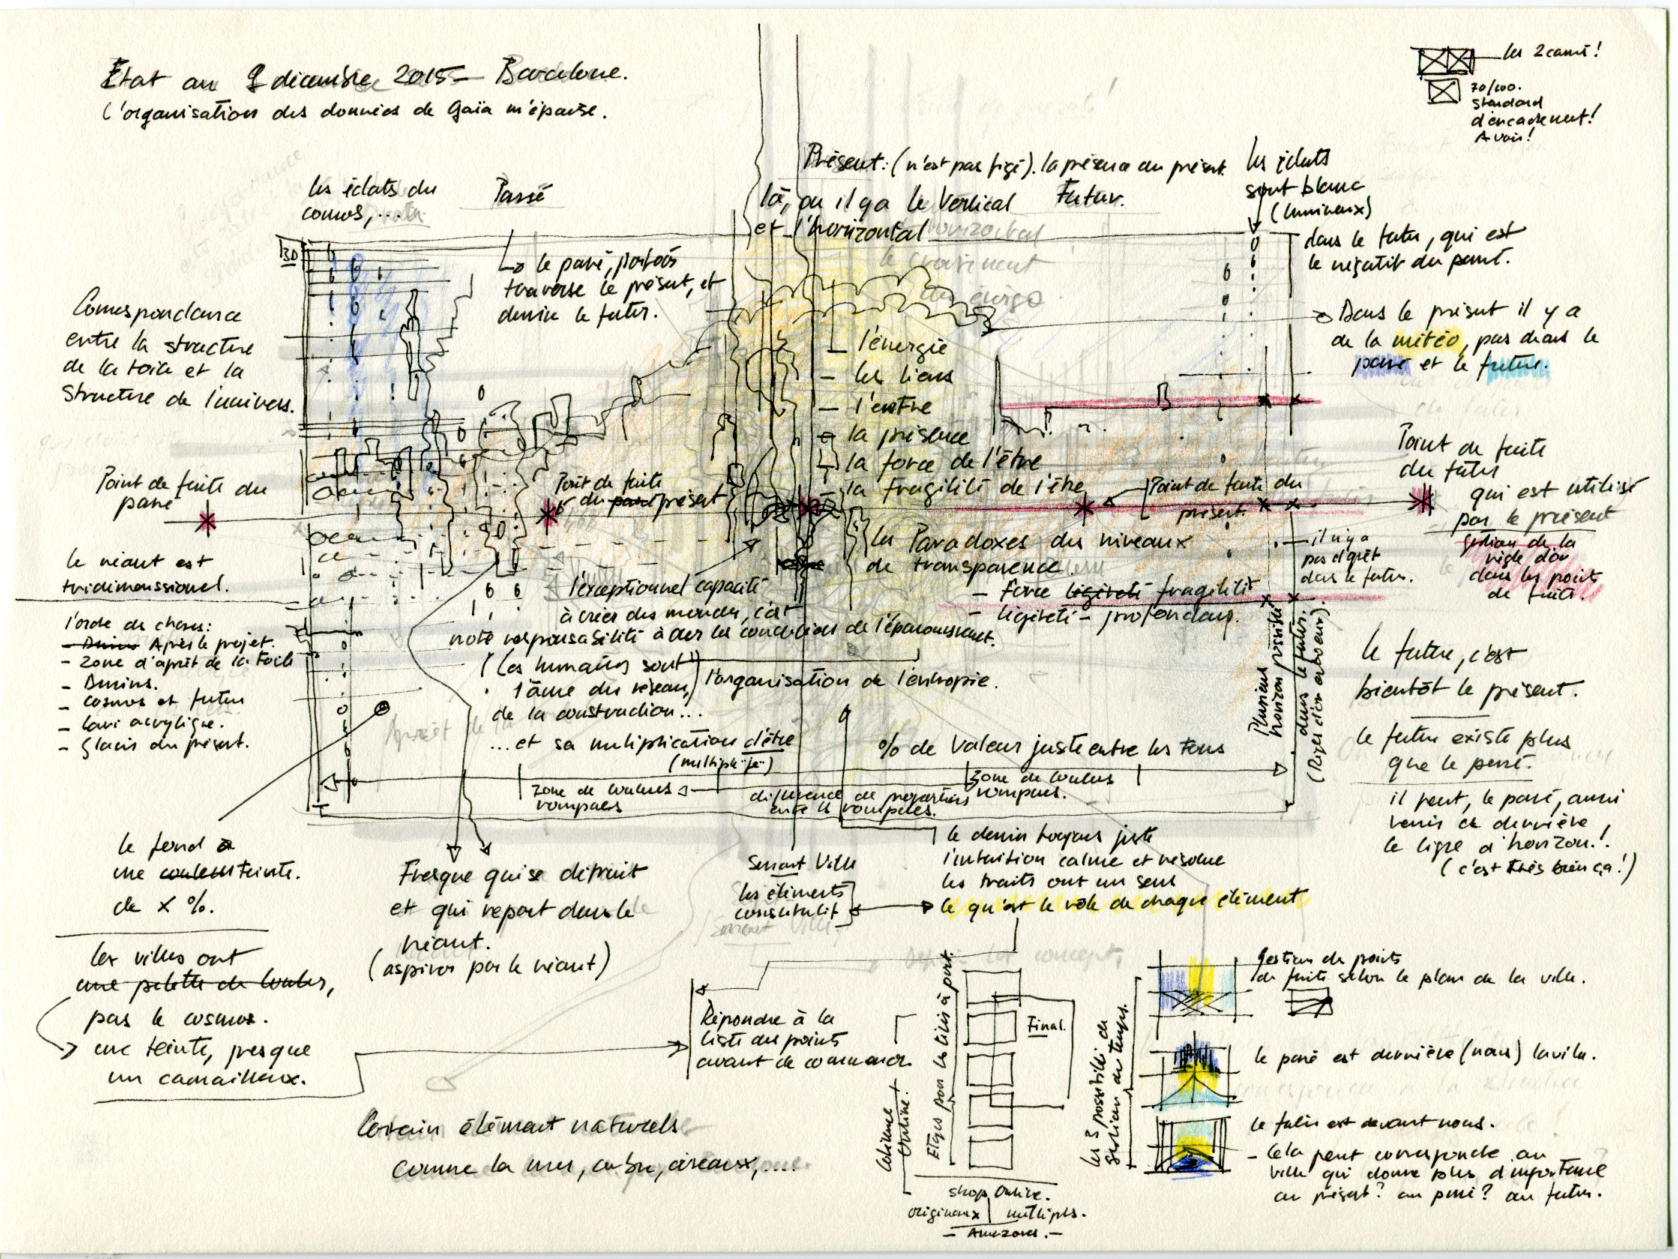 Etat au 9 décembre 2015 — Barcelone.
L'organisation des données de Gaïa m'épuise.
les 2 carrés!
70/100.
standard
d'encadrement!
A voir!
les éclats du
cosmos,...
Passé
Présent: (n'est pas figé). la présence du présent.
là, où il y a le Vertical
et l'horizontal
Futur.
les éclats
sont blanc
(lumineux)
dans le futur, qui est
le négatif du passé.
3D
le passé, parfois
traverse le présent, et
devine le futur.
Correspondance
entre la structure
de la toile et la
structure de l'univers.
Dans le présent il y a
de la météo, pas dans le
passé et le futur.
- l'énergie
- les liens
- l'entre
- la présence
- la force de l'être
- la fragilité de l'être
Point de fuite du
passé
Point de fuite
du passé présent
Point de fuite du
présent.
Point de fuite
du futur
qui est utilisé
par le présent
gestion de la
règle d'or
dans les points
de fuite.
les Paradoxes des niveaux
de transparence
- Force légèreté fragilité
- légèreté - profondeur.
il n'y a
pas d'arrêt
dans le futur.
Plusieurs
horizon possible
dans le futur.
le néant est
tridimensionnel.
l'ordre des choses:
- Dessins Après le projet.
- Zone d'apprêt de la toile
- Dessins.
- cosmos et futur
- lavi acrylique.
- Glacis du présent.
l'exceptionnel capacité
à créer des mondes, c'est
notre responsabilité à créer les conditions de l'épanouissement.
(les humains) sont
l'âme du réseau,
de la construction...
l'organisation de l'entropie.
... et sa multiplication d'être
(multiple "je")
% de valeur juste entre les tons
zone de couleurs
rompues
différence de proportions
entre les rompues.
zone de couleurs
rompues.
le futur, c'est
bientôt le présent.
le futur existe plus
que le passé.
il peut, le passé, aussi
venir de derrière
la ligne d'horizon!
(c'est très bien ça!)
le fond a
une couleur teinte.
de x %.
Fresque qui se détruit
et qui repart dans le
néant.
(aspirer par le néant)
Smart Ville
les éléments
constitutif
le dessin toujours juste
l'intuition calme et résolue
les traits ont un sens
ce qu'est le rôle de chaque élément
les villes ont
une palette de couleurs,
pas le cosmos.
une teinte, presque
un camaïeux.
Répondre à la
liste du points
avant de commencer.
Certain élément naturels
comme la mer, arbre, oiseaux,....
Etapes pour les toiles à part.
Final.
Colonne
Online!
shop Online.
originaux | multiples.
- Amazones. -
les 3 possibilité de
gestion du temps.
Gestion des points
de fuite selon le plan de la ville.
le passé est derrière (nous) la ville.
le futur est devant nous.
- Cela peut correspondre au
ville qui donne plus d'importance
au présent? au passé? au futur.